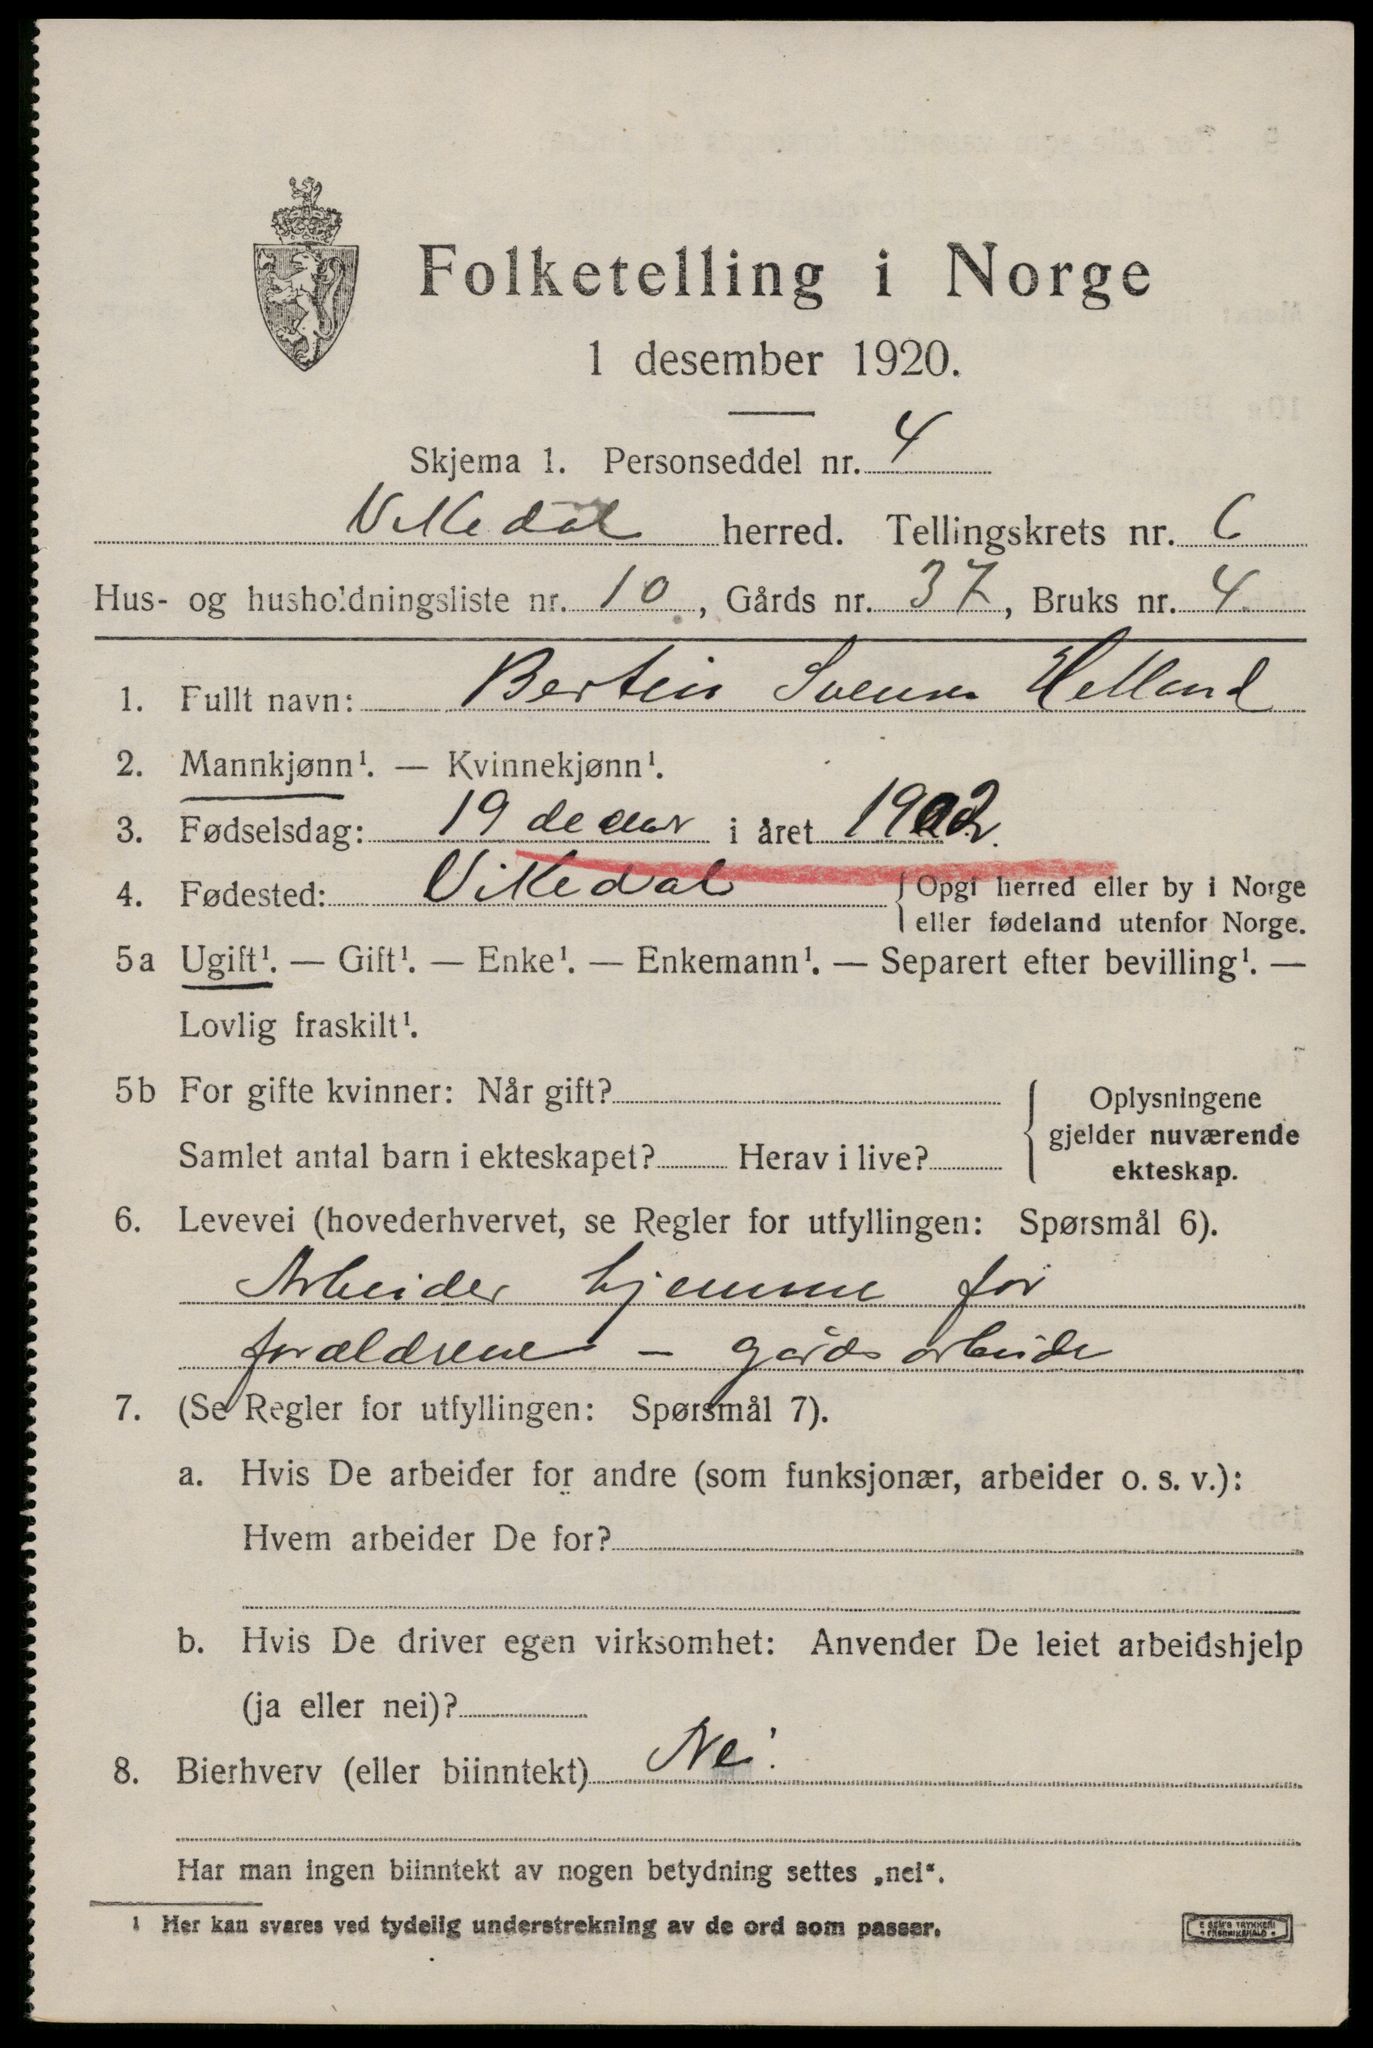 Folketelling i Norge
1 desember 1920.
Skjema 1. Personseddel nr. 4
Vikedal herred. Tellingskrets nr. 6
Hus- og husholdningsliste nr. 10, Gårds nr. 37, Bruks nr. 4
1. Fullt navn: Bertin Svensen Helland
2. Mannkjønn¹. — Kvinnekjønn¹.
3. Fødselsdag: 19 i året 1902
4. Fødested: Vikedal {Opgi herred eller by i Norge
eller fødeland utenfor Norge.
5a Ugift¹. — Gift¹. — Enke¹. — Enkemann¹. — Separert efter bevilling¹. —
Lovlig fraskilt¹.
5b For gifte kvinner: Når gift?
Samlet antal barn i ekteskapet? Herav i live?
Oplysningene
gjelder nuværende
ekteskap.
6. Levevei (hovederhvervet, se Regler for utfyllingen: Spørsmål 6).
Arbeider hjemme for
forældrene – gårdsarbeide
7. (Se Regler for utfyllingen: Spørsmål 7).
a. Hvis De arbeider for andre (som funksjonær, arbeider o. s. v.):
Hvem arbeider De for?
b. Hvis De driver egen virksomhet: Anvender De leiet arbeidshjelp
(ja eller nei)?
8. Bierhverv (eller biinntekt) Nei
Har man ingen biinntekt av nogen betydning settes „nei“.
1 Her kan svares ved tydelig understrekning av de ord som passer.